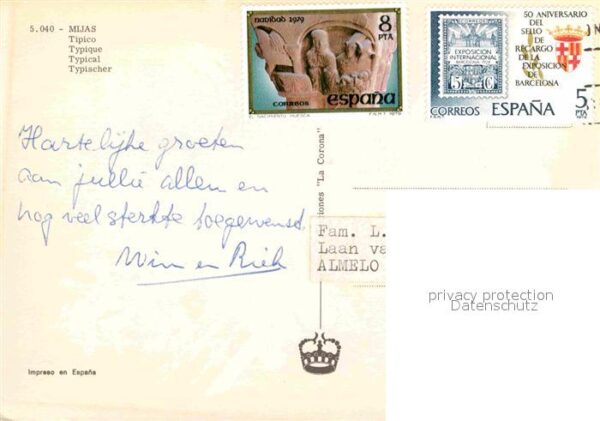 5.040 - MIJAS
Tipico
Typique
Typical
Typischer
navidad 1979
8
PTA
CORREOS
españa
EL NACIMIENTO HUESCA
F.N.M.T. 1979
50 ANIVERSARIO
DEL
SELLO DE
RECARGO
DE LA
EXPOSICION
DE
BARCELONA
EXPOSICION
INTERNACIONAL
5
CORREOS
ESPAÑA
5
PTA
Hartelijke groeten
aan jullie allen en
nog veel sterkte toegewenst.
Wim en Riek
iones "La Corona"
Fam. L.
Laan va
ALMELO
privacy protection
Datenschutz
Impreso en España